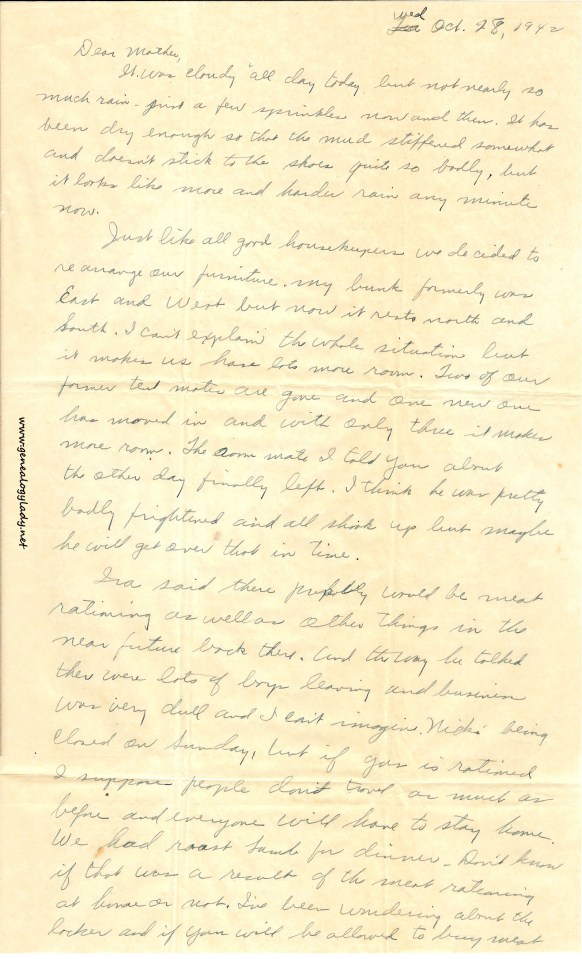 wed
Tue Oct. 28, 1942
Dear Mother,
It was cloudy all day today, but not nearly so
much rain - just a few sprinkles now and then. It has
been dry enough so that the mud stiffened somewhat
and doesn't stick to the shoes quite so badly, but
it looks like more and harder rain any minute
now.
Just like all good housekeepers we decided to
rearrange our furniture. My bunk formerly was
East and West but now it rests north and
South. I can't explain the whole situation but
it makes us have lots more room. Two of our
former tent mates are gone and one new one
has moved in and with only three it makes
more room. The room mate I told you about
the other day finally left. I think he was pretty
badly frightened and all shook up but maybe
he will get over that in time.
Ira said there probably would be meat
rationing as well as other things in the
near future back there. And the way he talked
ther were lots of boys leaving and business
was very dull and I can't imagine Nick's being
closed on Sunday, but if gas is rationed
I suppose people don't travel as much as
before and everyone will have to stay home.
We had roast lamb for dinner - Don't know
if that was a result of the meat rationing
at home or not. I've been wondering about the
locker and if you will be allowed to buy meat
www.genealogylady.net